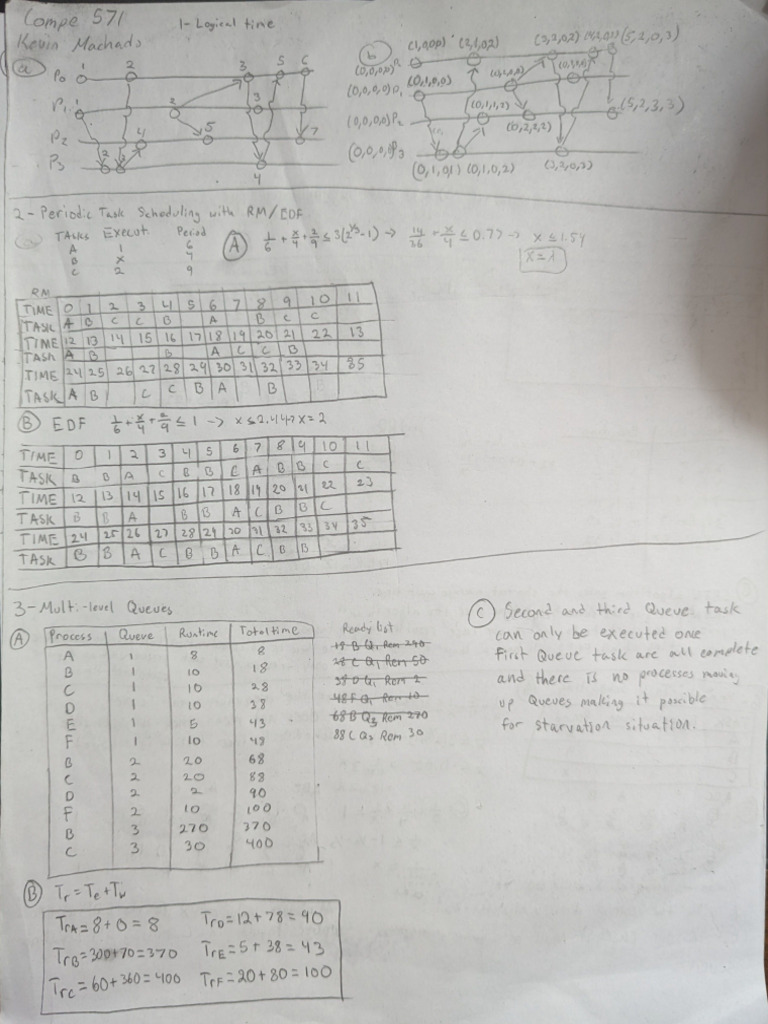 Compe 571
1-Logical time
Kevin Machado
(a)
P0 1 2 3 5 6
P1 1 2 3
P2 4 5 7
P3 2 3 4
(b)
(1,0,0,0) (2,1,0,2) (3,2,0,2) (5,2,0,3)
(0,0,0,0) P1 (0,1,0,0)
(0,0,0,0) P2 (0,1,1,2) (0,2,2,2) (5,2,3,3)
(0,0,0,0) P3
(0,1,0,1) (0,1,0,2) (3,2,0,3)
2-Periodic Task Scheduling with RM/EDF
TASKS Execut. Period
A 1 6
B x 4
C 2 9
(A) 1/6 + x/4 + 2/9 ≤ 3(2^1/3 -1) → 14/36 + x/4 ≤ 0.77 → x ≤ 1.54
x=1
RM
TIME 0 1 2 3 4 5 6 7 8 9 10 11
TASK A B C C B A B C C
TIME 12 13 14 15 16 17 18 19 20 21 22 13
TASK A B B A C C B
TIME 24 25 26 27 28 29 30 31 32 33 34 35
TASK A B C C B A B
(B) EDF 1/6 + x/4 + 2/9 ≤ 1 → x ≤ 2.44 → x=2
TIME 0 1 2 3 4 5 6 7 8 9 10 11
TASK B B A C B B C A B B C C
TIME 12 13 14 15 16 17 18 19 20 21 22 23
TASK B B A B B A C B B C
TIME 24 25 26 27 28 29 30 31 32 33 34 35
TASK B B A C B B A C B B
3-Multi-level Queues
(A)
Process Queue Runtime Total time
A 1 8 8
B 1 10 18
C 1 10 28
D 1 10 38
E 1 5 43
F 1 10 48
B 2 20 68
C 2 20 88
D 2 2 90
F 2 10 100
B 3 270 370
C 3 30 400
Ready list
18 B Q1 Rem 290
28 C Q1 Rem 50
38 D Q1 Rem 2
48 F Q1 Rem 10
68 B Q3 Rem 270
88 C Q3 Rem 30
(C) Second and third Queue task
can only be executed one
first Queue task are all complete
and there is no processes moving
up Queues making it possible
for starvation situation.
(B) Tr = Te + Tw
TrA = 8+0 = 8 TrD = 12+78 = 90
TrB = 300+70 = 370 TrE = 5+38 = 43
TrC = 60+360 = 400 TrF = 20+80 = 100